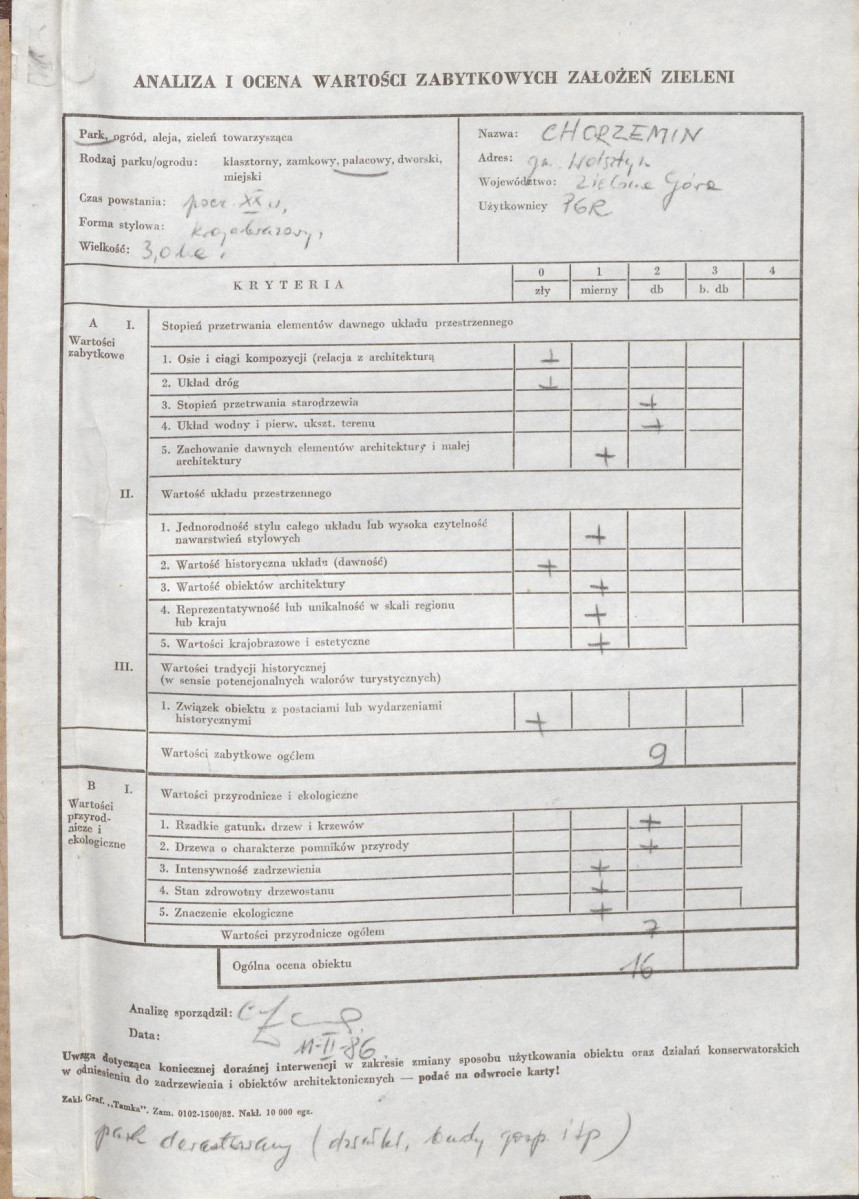 ANALIZA I OCENA WARTOŚCI ZABYTKOWYCH ZAŁOŻEŃ ZIELENI
Park, ogród, aleja, zieleń towarzysząca
Rodzaj parku/ogrodu: klasztorny, zamkowy, pałacowy, dworski,
miejski
Czas powstania: pocz. XX w,
Forma stylowa: krajobrazowy,
Wielkość: 3,0 ha,
Nazwa: CHORZEMIN
Adres: gm. Wolsztyn
Województwo: Zielona Góra
Użytkownicy PGR
KRYTERIA
0 1 2 3 4
zły mierny db b. db
A I. Stopień przetrwania elementów dawnego układu przestrzennego
Wartości
zabytkowe
1. Osie i ciągi kompozycji (relacja z architekturą +
2. Układ dróg +
3. Stopień przetrwania starodrzewia +
4. Układ wodny i pierw. ukszt. terenu +
5. Zachowanie dawnych elementów architektury i małej
architektury +
II. Wartość układu przestrzennego
1. Jednorodność stylu całego układu lub wysoka czytelność
nawarstwień stylowych +
2. Wartość historyczna układu (dawność) +
3. Wartość obiektów architektury +
4. Reprezentatywność lub unikalność w skali regionu
lub kraju +
5. Wartości krajobrazowe i estetyczne +
III. Wartości tradycji historycznej
(w sensie potencjonalnych walorów turystycznych)
1. Związek obiektu z postaciami lub wydarzeniami
historycznymi +
Wartości zabytkowe ogółem 9
B I. Wartości przyrodnicze i ekologiczne
Wartości
przyrod-
nicze i
ekologiczne
1. Rzadkie gatunki drzew i krzewów +
2. Drzewa o charakterze pomników przyrody +
3. Intensywność zadrzewienia +
4. Stan zdrowotny drzewostanu +
5. Znaczenie ekologiczne +
Wartości przyrodnicze ogółem 7
Ogólna ocena obiektu 16
Analizę sporządził:
Data: 11-II-86
Uwaga dotycząca koniecznej doraźnej interwencji w zakresie zmiany sposobu użytkowania obiektu oraz działań konserwatorskich
w odniesieniu do zadrzewienia i obiektów architektonicznych — podać na odwrocie karty!
Zakł. Graf. „Tamka". Zam. 0102-1500/82. Nakł. 10 000 egz.
park dewastowany (działki, budy gosp. itp)